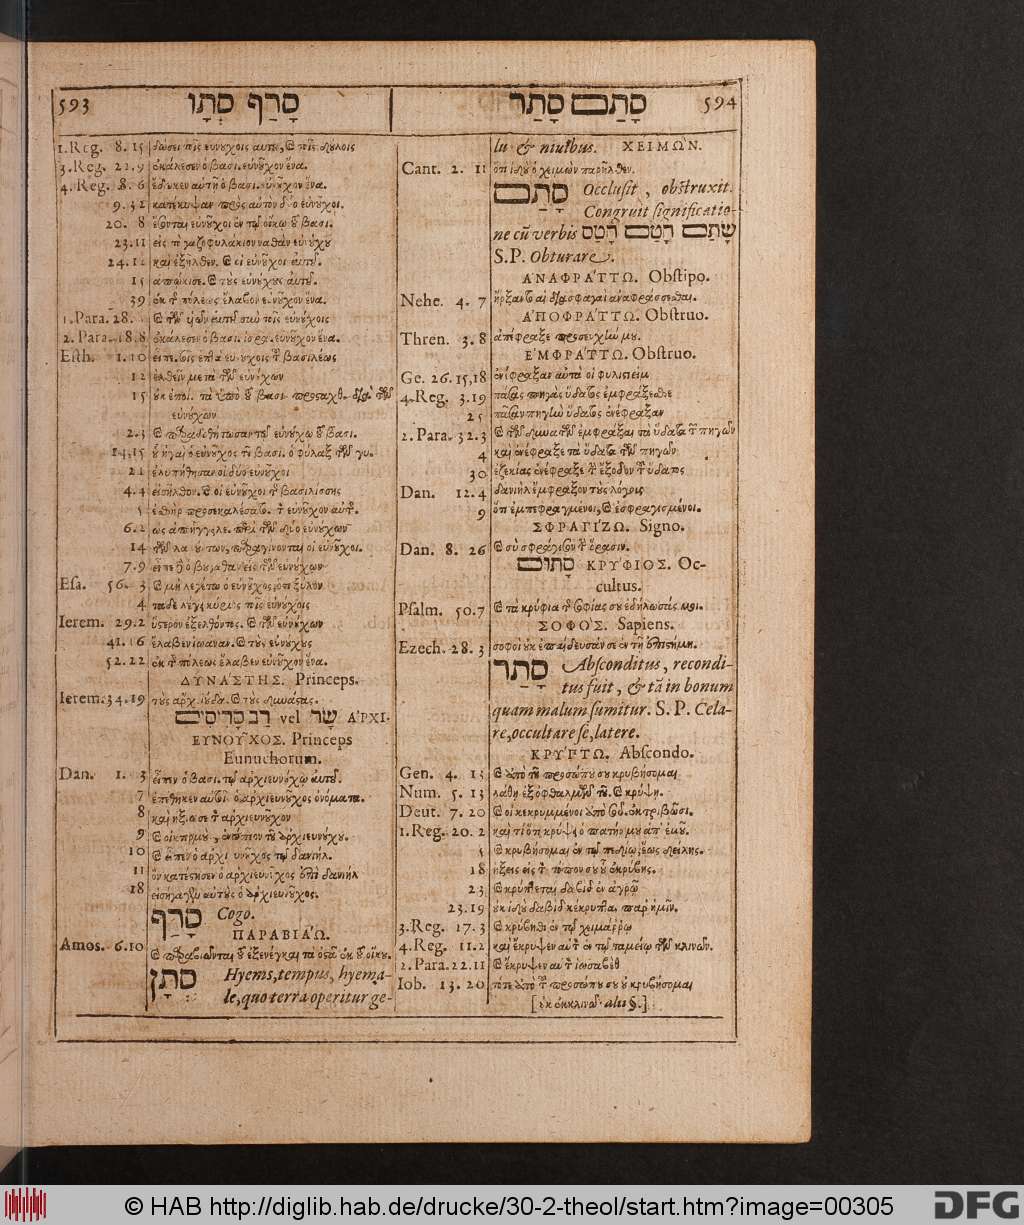 593 סָרַף סְתָו
1. Reg. 8. 15 δώσει τοῖς εὐνούχοις αὐτοῦ, καὶ τοῖς δούλοις
3. Reg. 22. 9 ἐκάλεσεν ὁ βασι. εὐνοῦχον ἕνα.
4. Reg. 8. 6 ἔδωκεν αὐτῇ ὁ βασι. εὐνοῦχον ἕνα.
9. 32 κατέκυψαν πρὸς αὐτὸν δύο εὐνοῦχοι.
20. 8 ἔσονται εὐνοῦχοι ἐν τῷ οἴκῳ τοῦ βασι.
23. 11 εἰς τὸ γαζοφυλάκιον ναθὰν εὐνούχου
24. 12 καὶ ἐξῆλθεν. καὶ οἱ εὐνοῦχοι αὐτοῦ.
15 ἀπῴκισε. καὶ τοὺς εὐνούχους αὐτοῦ.
39 ἐκ τῆς πόλεως ἔλαβον εὐνοῦχον ἕνα.
1. Para. 28.
2. Para. 18. 8 ἐκάλεσεν ὁ βασι. ἰσρα. εὐνοῦχον ἕνα.
Esth. 1. 10 εἶπε τοῖς ἑπτὰ εὐνούχοις τοῦ βασιλέως
12 ἐλθεῖν μετὰ τῶν εὐνούχων
15 οὐκ ἐποί. τὰ ὑπὸ τοῦ βασι. προσταχθ. διὰ τῶν
εὐνούχων
2. 3 καὶ παραδοθήτωσαν τῷ εὐνούχῳ τοῦ βασι.
14, 15
21 ἐλυπήθησαν οἱ δύο εὐνοῦχοι
4. 4 εἰσῆλθον. καὶ οἱ εὐνοῦχοι τῆς βασιλίσσης
5 ἐσθὴρ προσεκαλέσατο. τὸν εὐνοῦχον αὐτῆς.
6. 2 ὡς ἀπήγγειλε. περὶ τῶν δύο εὐνούχων
14 παραγίνονται οἱ εὐνοῦχοι.
7. 9 εἶπε δὲ ὁ βουγαθὰν εἷς τῶν εὐνούχων
Esa. 56. 3 καὶ μὴ λεγέτω ὁ εὐνοῦχος, ὅτι ξύλον
4 τάδε λέγει κύριος τοῖς εὐνούχοις
Ierem. 29. 2 ὕστερον ἐξελθόντος. καὶ τῶν εὐνούχων
41. 16 ἔλαβεν ἰωάναν. καὶ τοὺς εὐνούχους
52. 22 ἐκ τῆς πόλεως ἔλαβεν εὐνοῦχον ἕνα.
ΔΥΝΑΣΤΗΣ. Princeps.
Ierem. 34. 19 τοὺς ἄρχ. ἰούδα. καὶ τοὺς δυνάστας.
רַב סָרִיסִים vel שַׂר ἈΡΧΙ-
ΕΥΝΟΥ͂ΧΟΣ. Princeps
Eunuchorum.
Dan. 1. 3 εἶπεν ὁ βασι. τῷ ἀρχιευνούχῳ αὐτοῦ.
7 ἐπέθηκεν αὐτοῖς ὁ ἀρχιευνοῦχος ὀνόματα.
8 καὶ ἠξίωσε τὸν ἀρχιευνοῦχον
9
10 καὶ εἶπεν ὁ ἀρχιευνοῦχος τῷ δανιήλ.
11 ὃν κατέστησεν ὁ ἀρχιευνοῦχος ἐπὶ δανιήλ
18 εἰσήγαγεν αὐτοὺς ὁ ἀρχιευνοῦχος.
סָרַף Cogo.
ΠΑΡΑΒΙΑΏ.
Amos. 6. 10 καὶ παραβιῶνται τοῦ ἐξενέγκαι τὰ ὀστᾶ ἐκ τοῦ οἴκου.
Hyems, tempus, hyema-
le, quo terra operitur ge-
סָתַם סָתַר 594
lu & niuibus. ΧΕΙΜΩΝ.
Cant. 2. 11 ὅτι ἰδοὺ ὁ χειμὼν παρῆλθεν.
סָתַם Occlusit, obstruxit.
Congruit significatio-
ne cū verbis שָׂתַם
S. P. Obturare.
ἈΝΑΦΡΆΤΤΩ. Obstipo.
Nehe. 4. 7 ἤρξαντο αἱ διασφαγαὶ ἀναφράσσεσθαι.
ἈΠΟΦΡΆΤΤΩ. Obstruo.
Thren. 3. 8 ἀπέφραξε προσευχήν μου.
ἘΜΦΡΆΤΤΩ. Obstruo.
Ge. 26. 15, 18 ἐνέφραξαν αὐτὰ οἱ φυλιστιείμ
4. Reg. 3. 19 πάσας πηγὰς ὕδατος ἐμφράξεσθε
25 πᾶσαν πηγὴν ὕδατος ἐνέφραξαν
2. Para. 32. 3 ἐμφράξαι τὰ ὕδατα τῶν πηγῶν
4 καὶ ἐνέφραξε τὰ ὕδατα τῶν πηγῶν
30 ἐζεκίας ἐνέφραξε τὴν ἔξοδον τοῦ ὕδατος
Dan. 12. 4 δανιὴλ ἔμφραξον τοὺς λόγους
9 ὅτι ἐμπεφραγμένοι, καὶ ἐσφραγισμένοι.
ΣΦΡΑΓΊΖΩ. Signo.
Dan. 8. 26 καὶ σὺ σφράγισον τὴν ὅρασιν.
סָתוּם ΚΡΥΦΙΟΣ. Oc-
cultus.
Psalm. 50. 7 καὶ τὰ κρύφια τῆς σοφίας σου ἐδήλωσάς μοι.
ΣΟΦΌΣ. Sapiens.
Ezech. 28. 3 σοφοὶ οὐκ ἐπαίδευσάν σε ἐν τῇ ἐπιστήμῃ.
סָתַר Absconditus, recondi-
tus fuit, & tā in bonum
quam malum sumitur. S. P. Cela-
re, occultare se, latere.
ΚΡΥΠΤΩ. Abscondo.
Gen. 4. 13 καὶ ἀπὸ τοῦ προσώπου σου κρυβήσομαι
Num. 5. 13 λάθῃ ἐξ ὀφθαλμῶν τοῦ. καὶ κρύψῃ.
Deut. 7. 20 καὶ οἱ κεκρυμμένοι ἀπὸ σοῦ. ἐκτριβῶσι.
1. Reg. 20. 2 καὶ τί ὅτι κρύψει ὁ πατήρ μου ἀπ' ἐμοῦ.
5 καὶ κρυβήσομαι ἐν τῷ πεδίῳ, ἕως δείλης.
18 ἥξεις εἰς τὸν τόπον σου οὗ ἐκρύβης.
23 καὶ κρύπτεται δαβὶδ ἐν ἀγρῷ
23. 19 οὐκ ἰδοὺ δαβὶδ κέκρυπται παρ' ἡμῖν.
3. Reg. 17. 3 καὶ κρύβηθι ἐν τῷ χειμάρρῳ
4. Reg. 11. 2 καὶ ἔκρυψεν αὐτὸν ἐν τῷ ταμείῳ τῶν κλινῶν.
2. Para. 22. 11 καὶ ἔκρυψεν αὐτὸν ἰωσαβὲθ
Iob. 13. 20 τότε ἀπὸ τοῦ προσώπου σου οὐ κρυβήσομαι
© HAB http://diglib.hab.de/drucke/30-2-theol/start.htm?image=00305
DFG